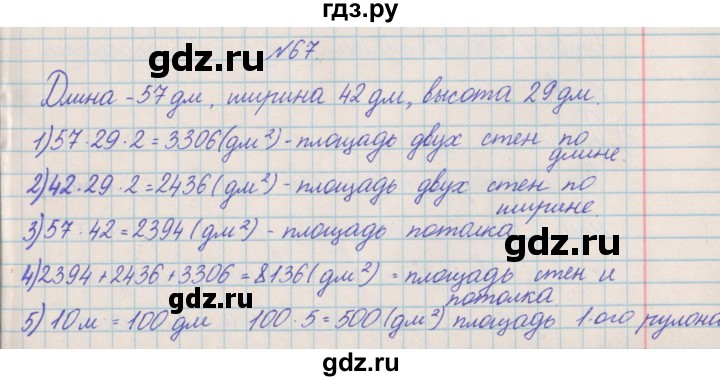 гдз.ру
№67.
Длина - 57 дм, ширина 42 дм, высота 29 дм.
1) 57 · 29 · 2 = 3306 (дм²) - площадь двух стен по
длине.
2) 42 · 29 · 2 = 2436 (дм²) - площадь двух стен по
ширине.
3) 57 · 42 = 2394 (дм²) - площадь потолка
4) 2394 + 2436 + 3306 = 8136 (дм²) - площадь стен и
потолка
5) 10 м = 100 дм 100 · 5 = 500 (дм²) площадь 1-ого рулона
gdz.ru
gdz.ru
gdz.ru
gdz.ru
gdz.ru
gdz.ru
gdz.ru
gdz.ru
gdz.ru